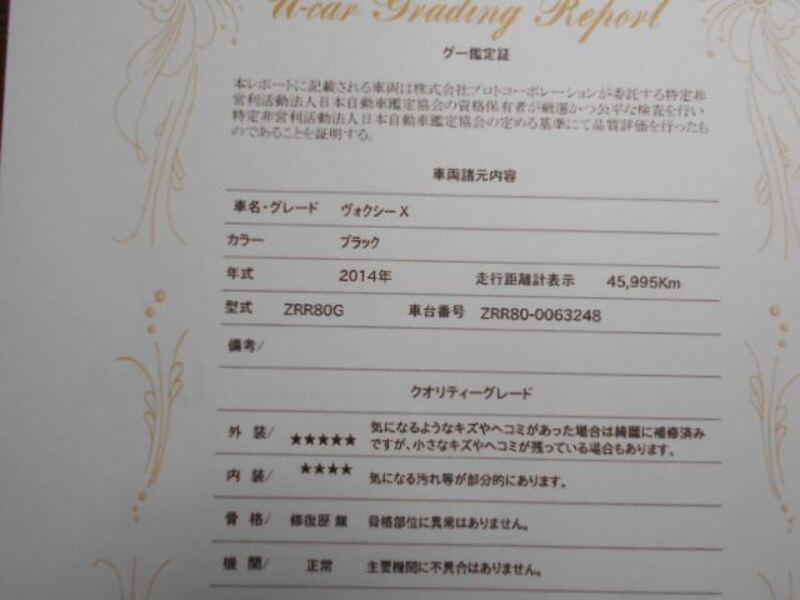 U-car Grading Report
グー鑑定証
本レポートに記載される車両は株式会社プロトコーポレーションが委託する特定非
営利活動法人日本自動車鑑定協会の資格保有者が厳選かつ公平な検査を行い
特定非営利活動法人日本自動車鑑定協会の定める基準にて品質評価を行ったも
のであることを証明する。
車両諸元内容
車名・グレード ヴォクシー X
カラー ブラック
年式 2014年 走行距離計表示 45,995Km
型式 ZRR80G 車台番号 ZRR80-0063248
備考/
クオリティーグレード
外 装/ ★★★★★ 気になるようなキズやヘコミがあった場合は綺麗に補修済み
ですが、小さなキズやヘコミが残っている場合もあります。
内 装/ ★★★★ 気になる汚れ等が部分的にあります。
骨 格/ 修復歴 無 骨格部位に異常はありません。
機 関/ 正常 主要機関に不具合はありません。